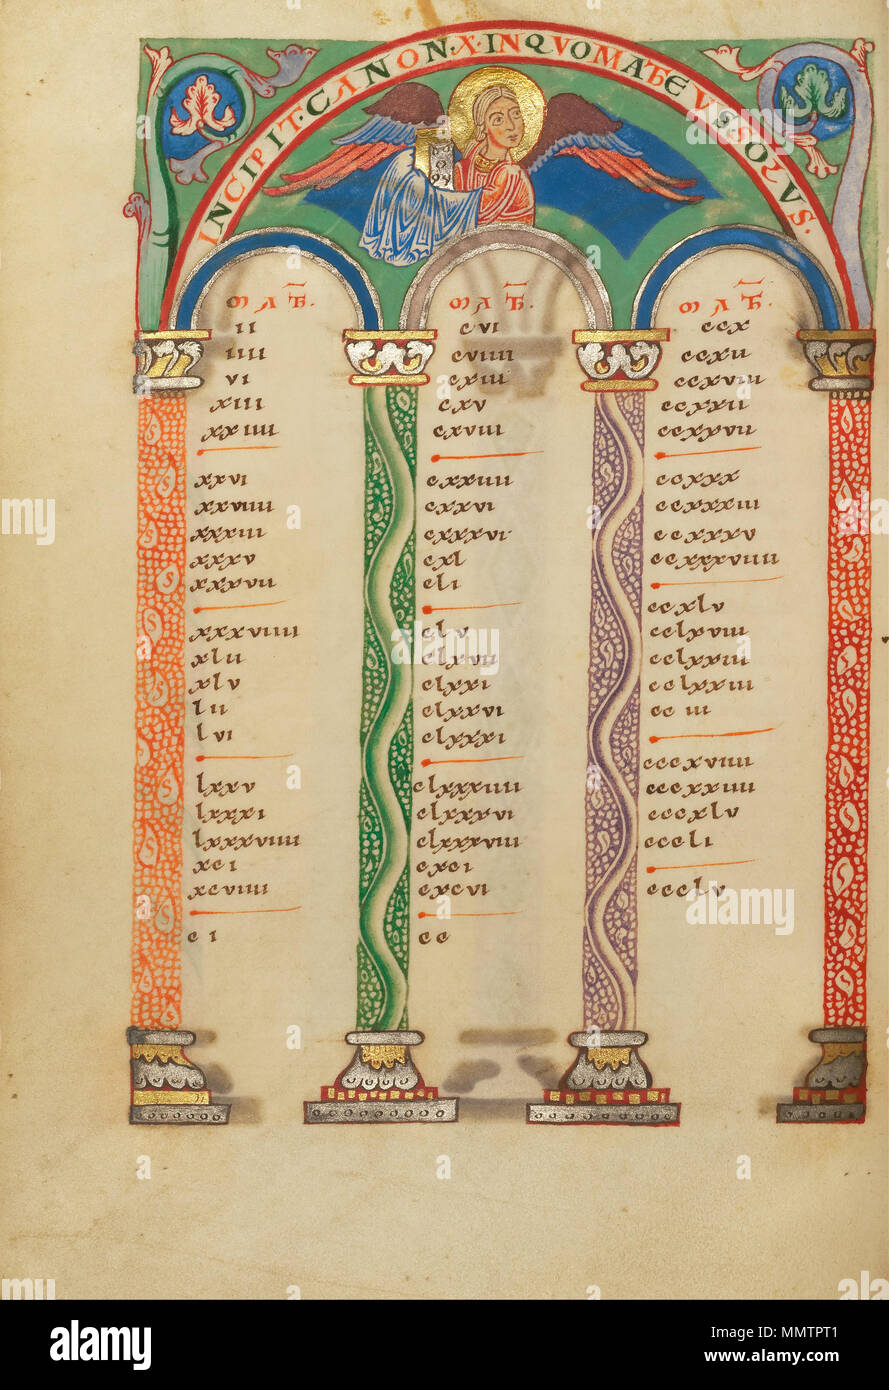 INCIPIT·CANON·X·INQVOMATHEVS·SOLVS·
MATH.
ii
iiii
vi
xiii
xxiiii
xxvi
xxviiii
xxxiii
xxxv
xxxvii
xxxviiii
xlii
xlv
lii
lvi
lxxv
lxxxi
lxxxviiii
xci
xcviiii
ci
MATH.
cvi
cviiii
cxiii
cxv
cxviii
cxxiiii
cxxvi
cxxxvi
cxl
cli
clv
clxvii
clxxi
clxxvi
clxxxi
clxxxiiii
clxxxvi
clxxxviii
cxci
cxcvi
cc
MATH.
ccx
ccxii
ccxviii
ccxxii
ccxxvii
ccxxx
ccxxxiii
ccxxxv
ccxxxviiii
ccxlv
cclxviii
cclxxiii
cclxxiii
cc iii
cccxviiii
cccxxiiii
cccxlv
cccli
ccclv
alamy
Image ID: MMTPT1
www.alamy.com